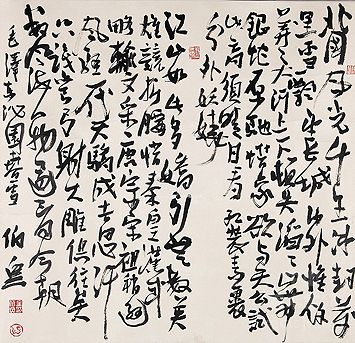 北國風光千里冰封萬
里雪飄望長城內外惟餘
莽莽大河上下頓失滔滔山舞
銀蛇原馳蠟象欲與天公試
比高須晴日看紅裝素裹
分外妖嬈
江山如此多嬌引無數英
雄競折腰惜秦皇漢武
略輸文采唐宗宋祖稍遜
風騷一代天驕成吉思汗
只識彎弓射大雕俱往矣
數風流人物還看今朝
毛澤東沁園春雪 伯